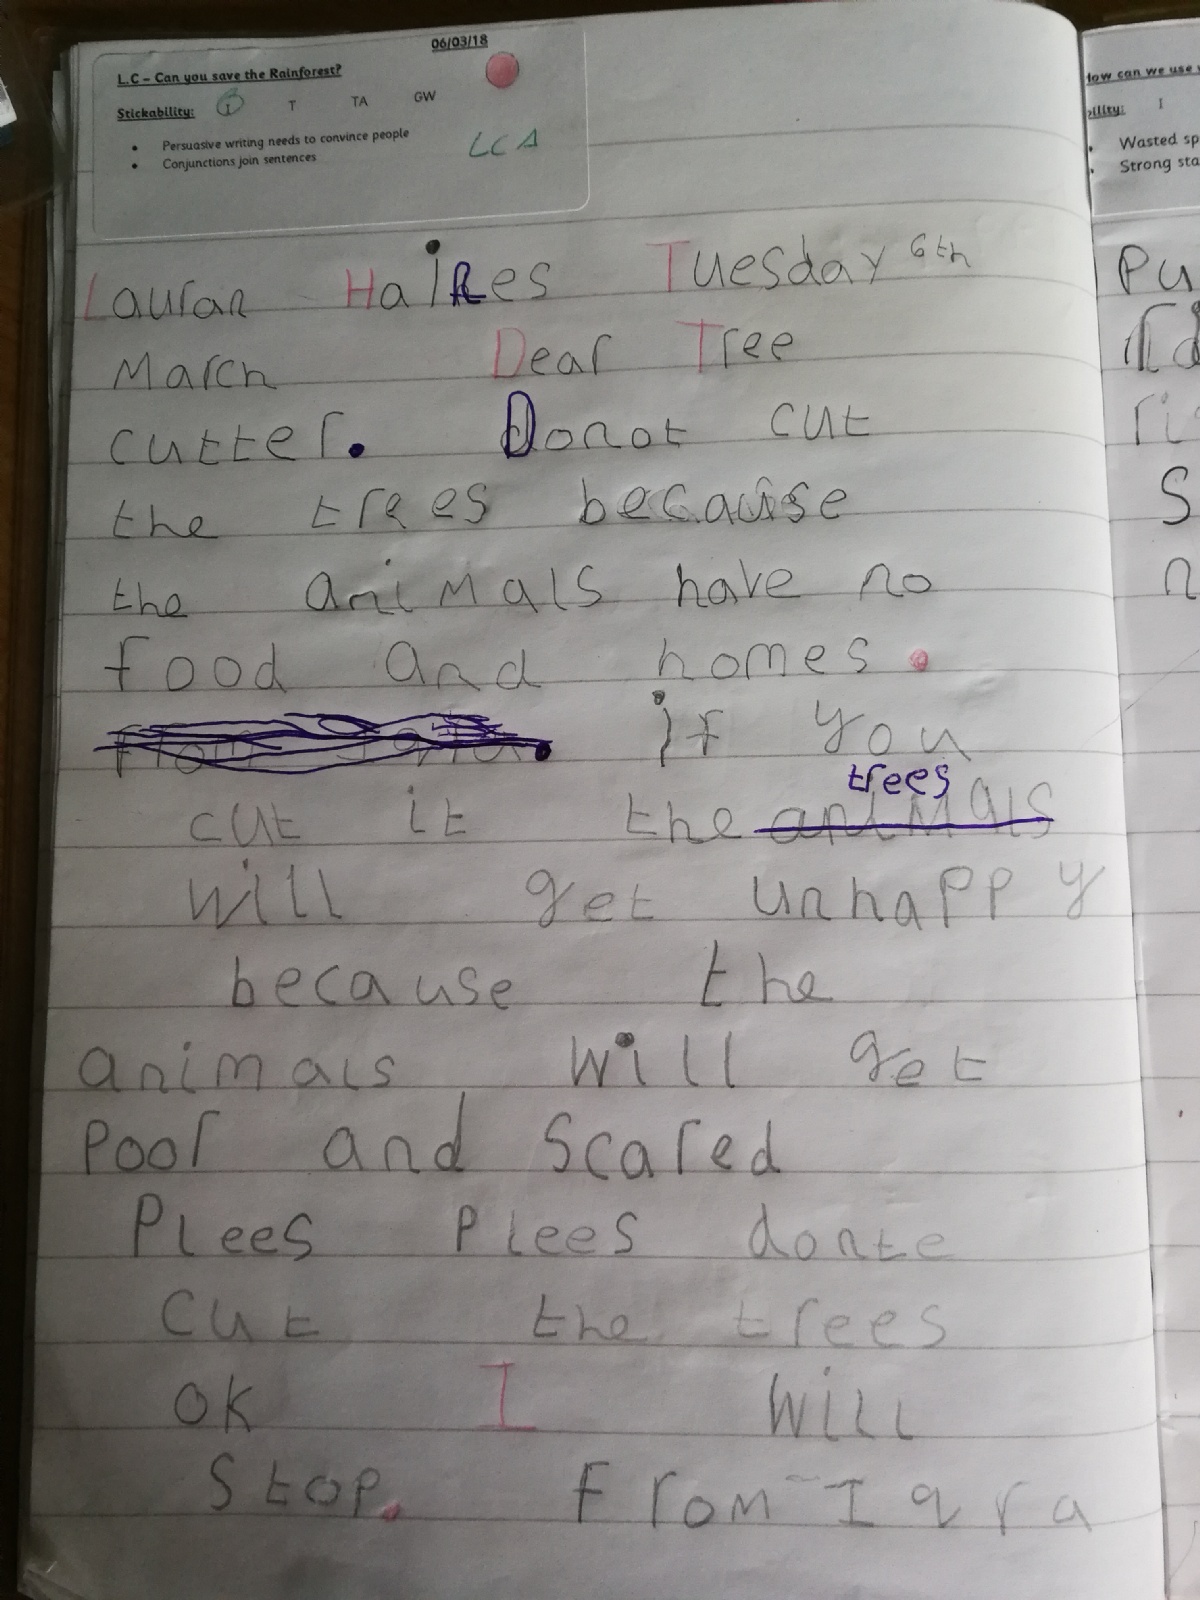 06/03/18
L.C – Can you save the Rainforest?
Stickability: I T TA GW
• Persuasive writing needs to convince people
• Conjunctions join sentences
LCA
Lauran Haires Tuesday 6th
March Dear Tree
cutter. Donot cut
the trees because
the animals have no
food and homes.
if you
trees
cut it the animals
will get unhappy
because the
animals will get
Poor and Scared
Plees Plees donte
cut the trees
ok I will
Stop. From Iqra
How can we use
Wasted sp
Strong sta
Pu
ri
S
n